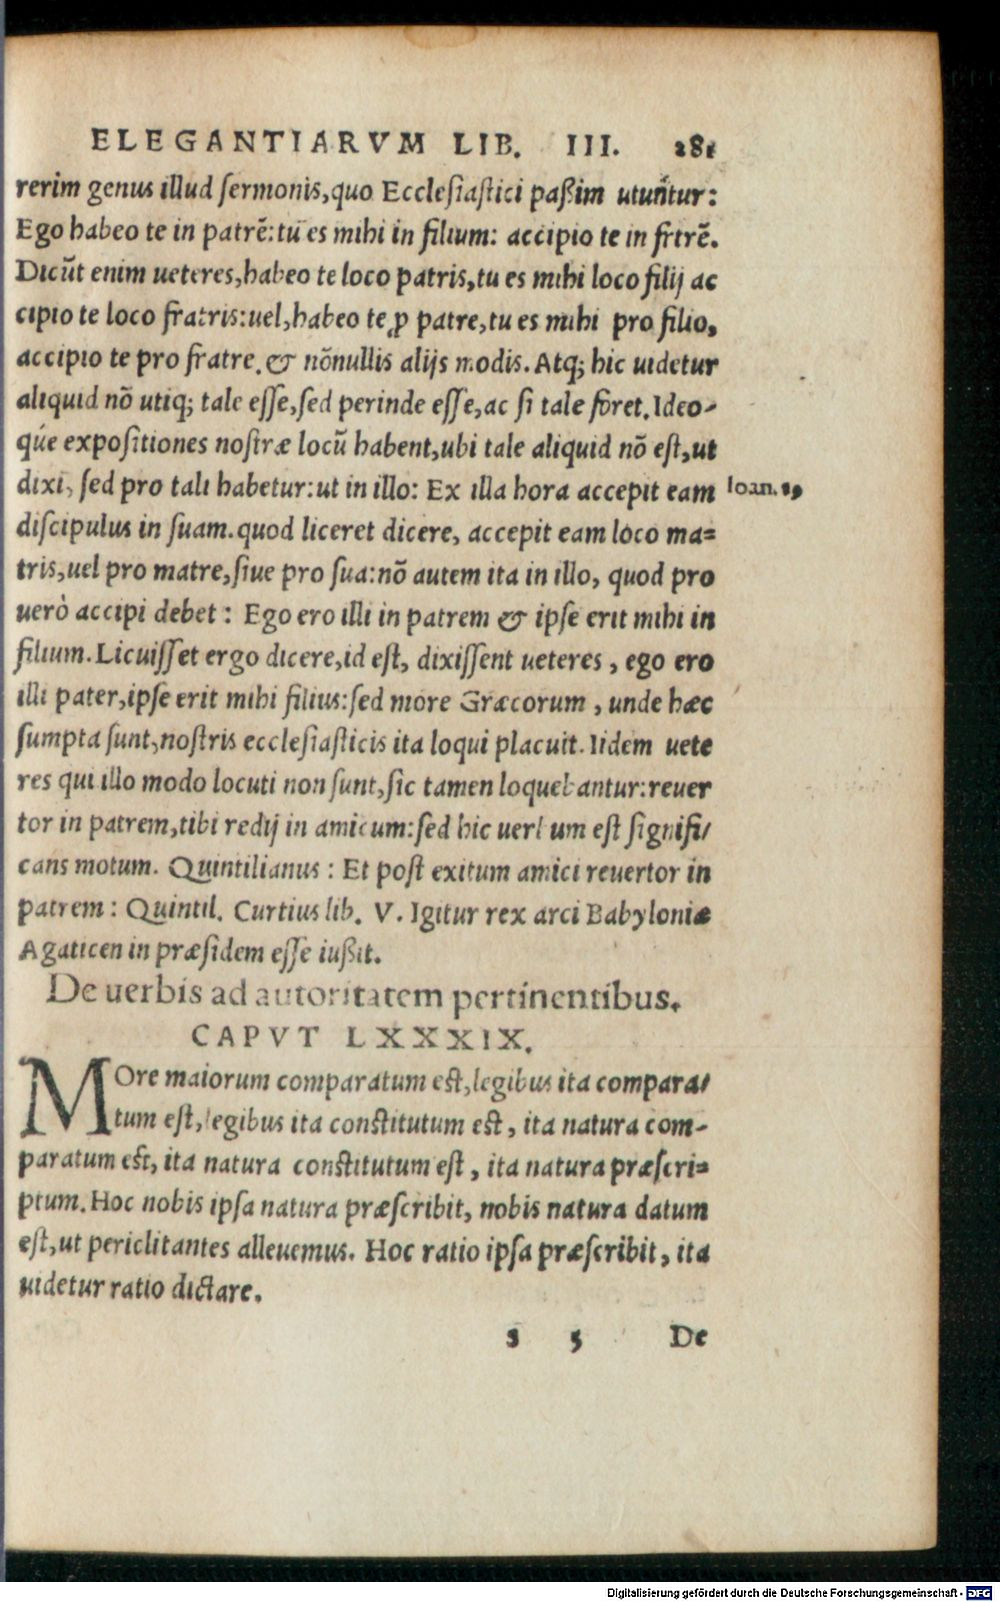 ELEGANTIARVM LIB. III. 281
rerim genus illud sermonis, quo Ecclesiastici paßim utuñtur:
Ego habeo te in patrẽ: tu es mihi in filium: accipio te in frtrẽ.
Dicũt enim ueteres, habeo te loco patris, tu es mihi loco filij ac
cipio te loco fratris: uel, habeo te ꝓ patre, tu es mihi pro filio,
accipio te pro fratre. & nõnullis alijs modis. Atq; hic uidetur
aliquid nõ utiq; tale esse, sed perinde esse, ac si tale foret. Ideo-
qúe expositiones nostræ locũ habent, ubi tale aliquid nõ est, ut
dixi, sed pro tali habetur: ut in illo: Ex illa hora accepit eam
Ioan. 19
discipulus in suam. quod liceret dicere, accepit eam loco ma=
tris, uel pro matre, siue pro sua: nõ autem ita in illo, quod pro
uerò accipi debet: Ego ero illi in patrem & ipse erit mihi in
filium. Licuisset ergo dicere, id est, dixissent ueteres, ego ero
illi pater, ipse erit mihi filius: sed more Græcorum, unde hæc
sumpta sunt, nostris ecclesiasticis ita loqui placuit. Iidem uete
res qui illo modo locuti non sunt, sic tamen loquebantur: reuer
tor in patrem, tibi redij in amicum: sed hic uerbum est signifi/
cans motum. Quintilianus: Et post exitum amici reuertor in
patrem: Quintil. Curtius lib. V. Igitur rex arci Babyloniæ
Agaticen in præsidem esse iußit.
De uerbis ad autoritatem pertinentibus.
CAPVT LXXXIX.
MOre maiorum comparatum est, legibus ita compara/
tum est, legibus ita constitutum est, ita natura com-
paratum est, ita natura constitutum est, ita natura præscri=
ptum. Hoc nobis ipsa natura præscribit, nobis natura datum
est, ut periclitantes alleuemus. Hoc ratio ipsa præscribit, ita
uidetur ratio dictare.
s 5 De
Digitalisierung gefördert durch die Deutsche Forschungsgemeinschaft - DFG